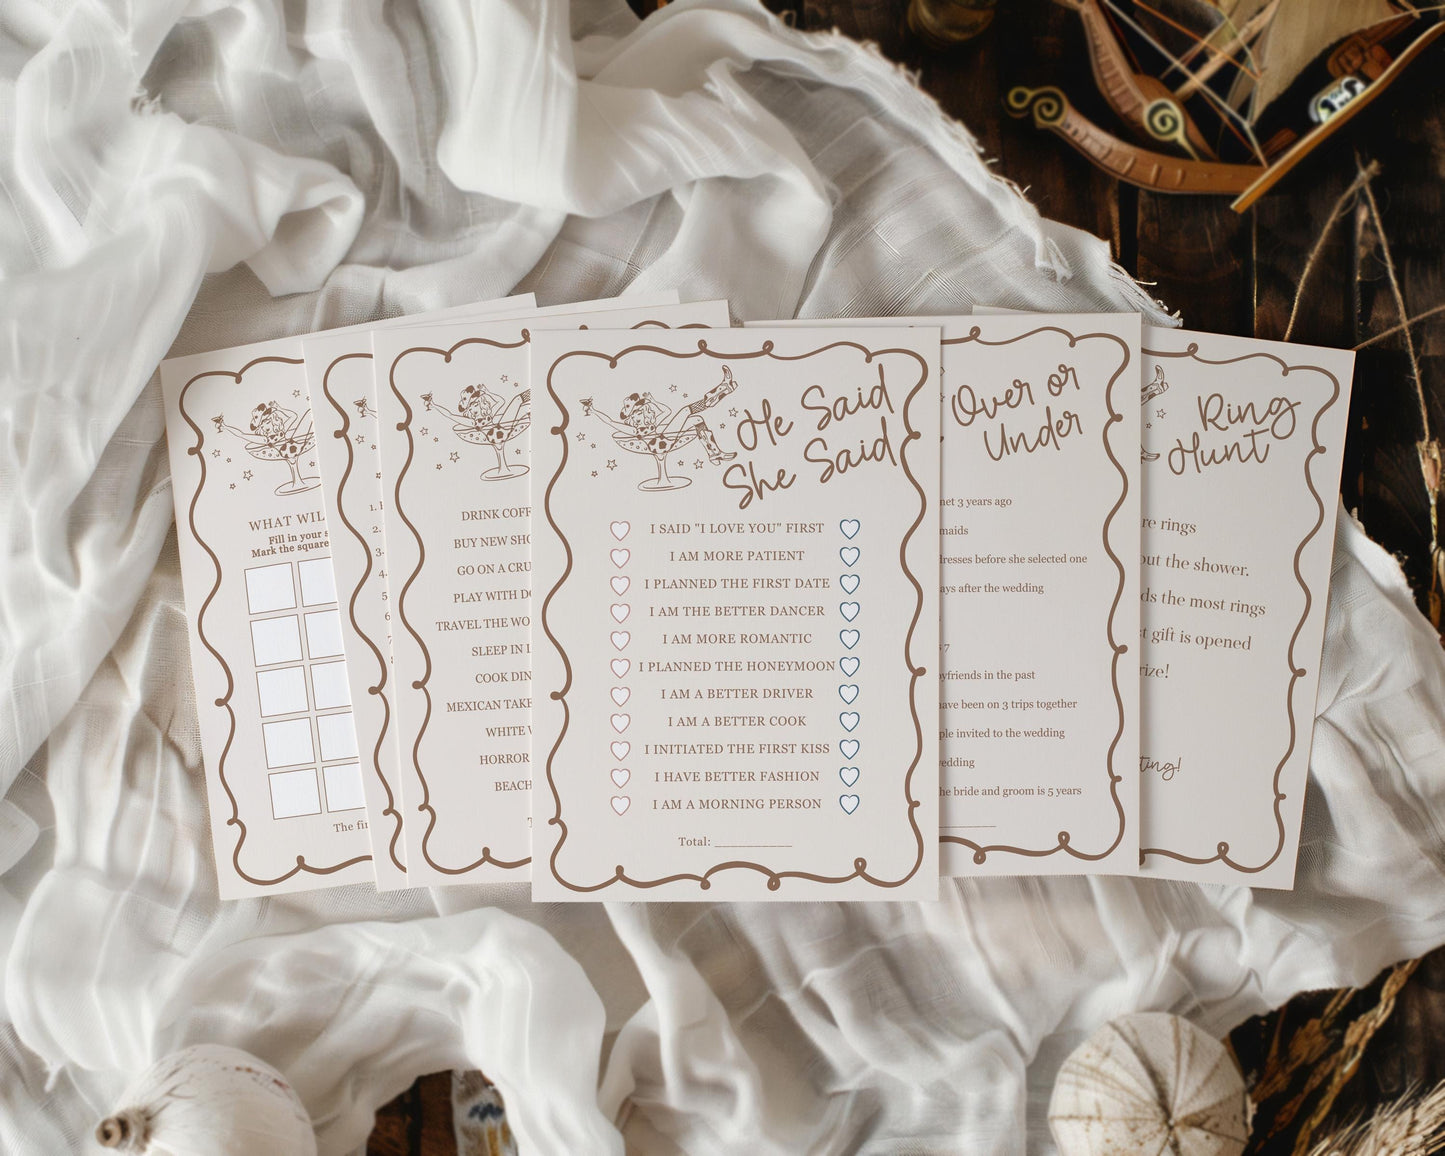 WHAT WIL
Fill in your s
Mark the square
The fir
1.
2.
3.
4.
5
6
7
DRINK COFF
BUY NEW SHO
GO ON A CRU
PLAY WITH DO
TRAVEL THE WO
SLEEP IN L
COOK DIN
MEXICAN TAKE
WHITE
HORROR
BEACH
He Said
She Said
I SAID "I LOVE YOU" FIRST
I AM MORE PATIENT
I PLANNED THE FIRST DATE
I AM THE BETTER DANCER
I AM MORE ROMANTIC
I PLANNED THE HONEYMOON
I AM A BETTER DRIVER
I AM A BETTER COOK
I INITIATED THE FIRST KISS
I HAVE BETTER FASHION
I AM A MORNING PERSON
Total: ___________
Over or
Under
net 3 years ago
maids
dresses before she selected one
ays after the wedding
7
oyfriends in the past
have been on 3 trips together
ple invited to the wedding
wedding
he bride and groom is 5 years
Ring
Hunt
re rings
out the shower.
ds the most rings
st gift is opened
rize!
ting!